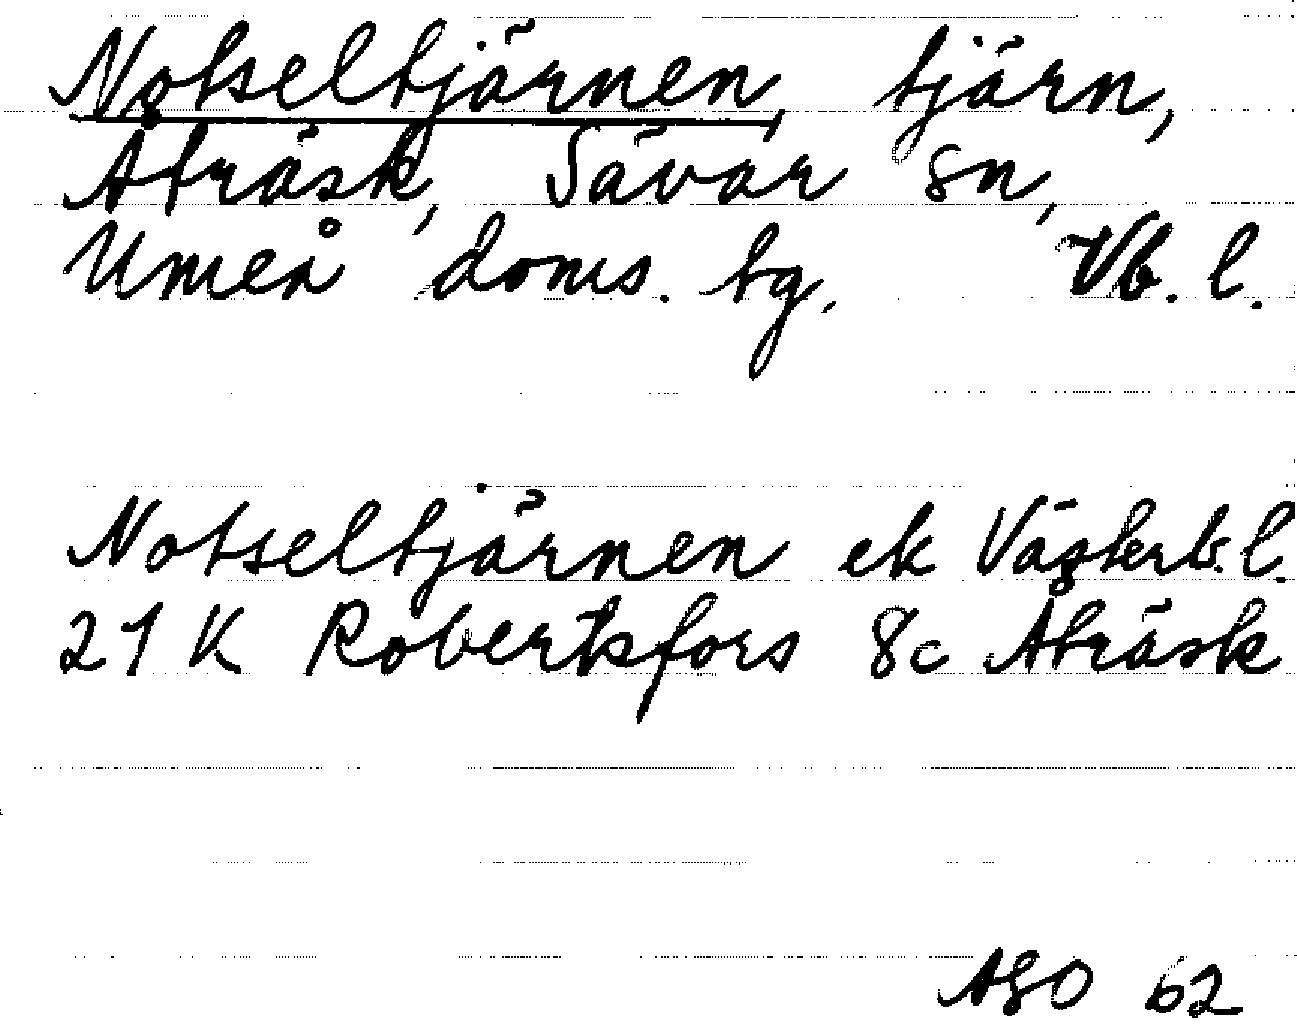 Notseltjärnen, tjärn,
Åträsk, Sävar sn,
Umeå doms. tg. Vb. l.
Notseltjärnen ek Västerb. l.
21 K Robertsfors 8c Åträsk
ASO 62